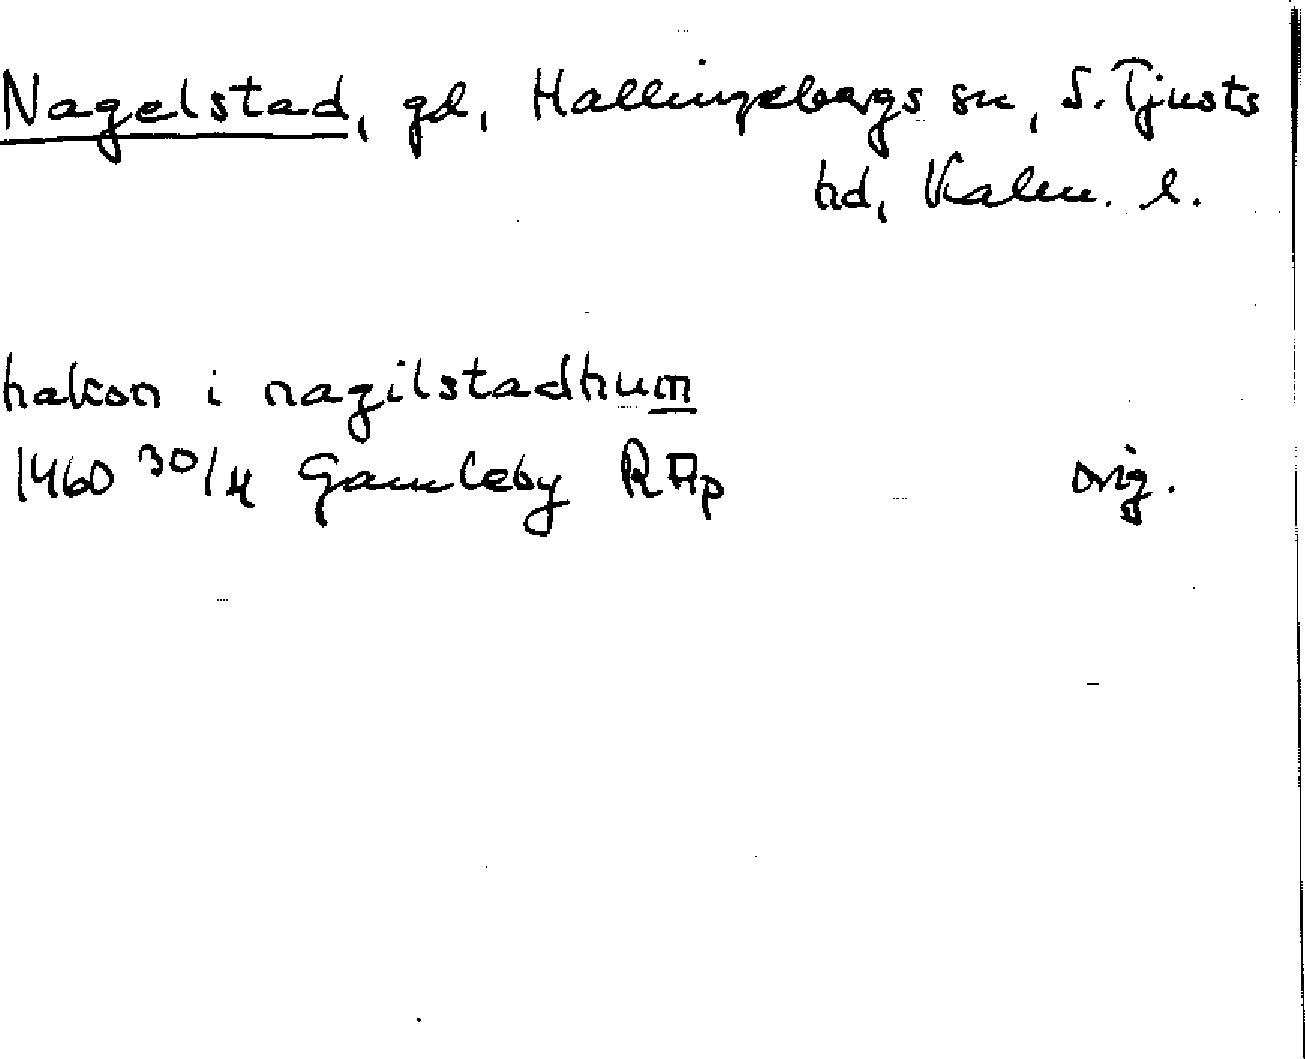 Nagelstad, gd, Hallingebergs sn, S. Tjusts
hd, Kalm. l.
hakon i nagilstadhum
1460 30/4 Gamleby RAp orig.